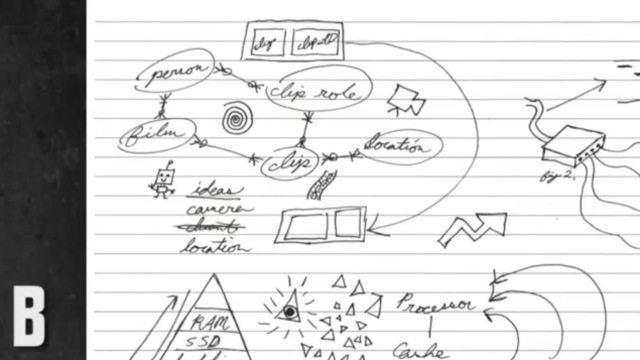 clip
person
clip role
film
clip
location
ideas
camera
location
fig 2.
B
RAM
SSD
Processor
Cache